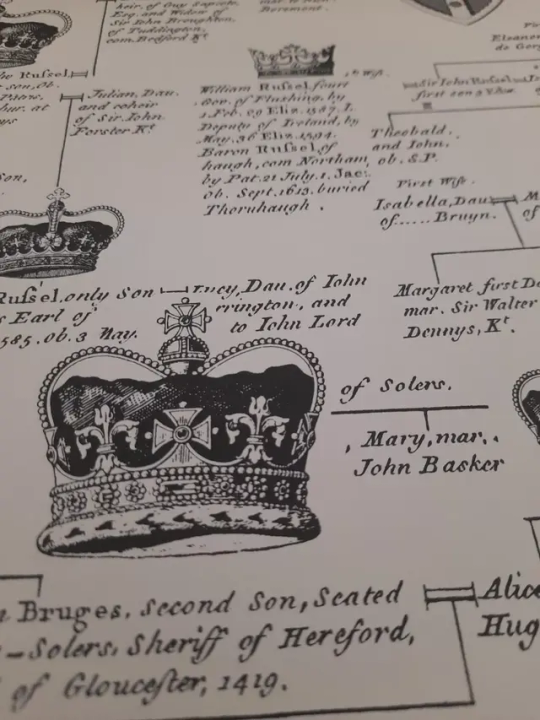 heir. of Guy Sapcote
Esq. and Widow of
Sir John Broughton
of Tuddington,
com. Bedford Kt
mar. to
Beremont.
Eleanor
de Gor
he Russel
son. ob.
bur. at
ys
Julian, Dau.
and coheir
of Sir John
Forster Kt
Son,
1st Wife.
William Russel four
Gov. of Flushing, by
1. Feb. 29 Eliz. 1587. L
Deputy of Ireland, by
May, 36 Eliz. 1594.
Baron Russel, of
haugh, com Northam
by Pat. 21 July. 1. Jac.
ob. Sept. 1613. buried
Thornhaugh .
Sir John Russel
first son
Theobald.
and John.
ob. S.P.
First Wife.
Isabella, Dau
of...... Bruyn.
M
of
Rufsel. only Son
s Earl of
585. ob. 3 May.
Lucy, Dau. of John
rrington, and
to John Lord
Margaret first D
mar. Sir Walter
Dennys, Kt.
of Solers.
, Mary, mar. .
John Basker
n Bruges, second Son, Seated
-Solers, Sheriff of Hereford,
of Gloucester, 1419.
Alice
Hug